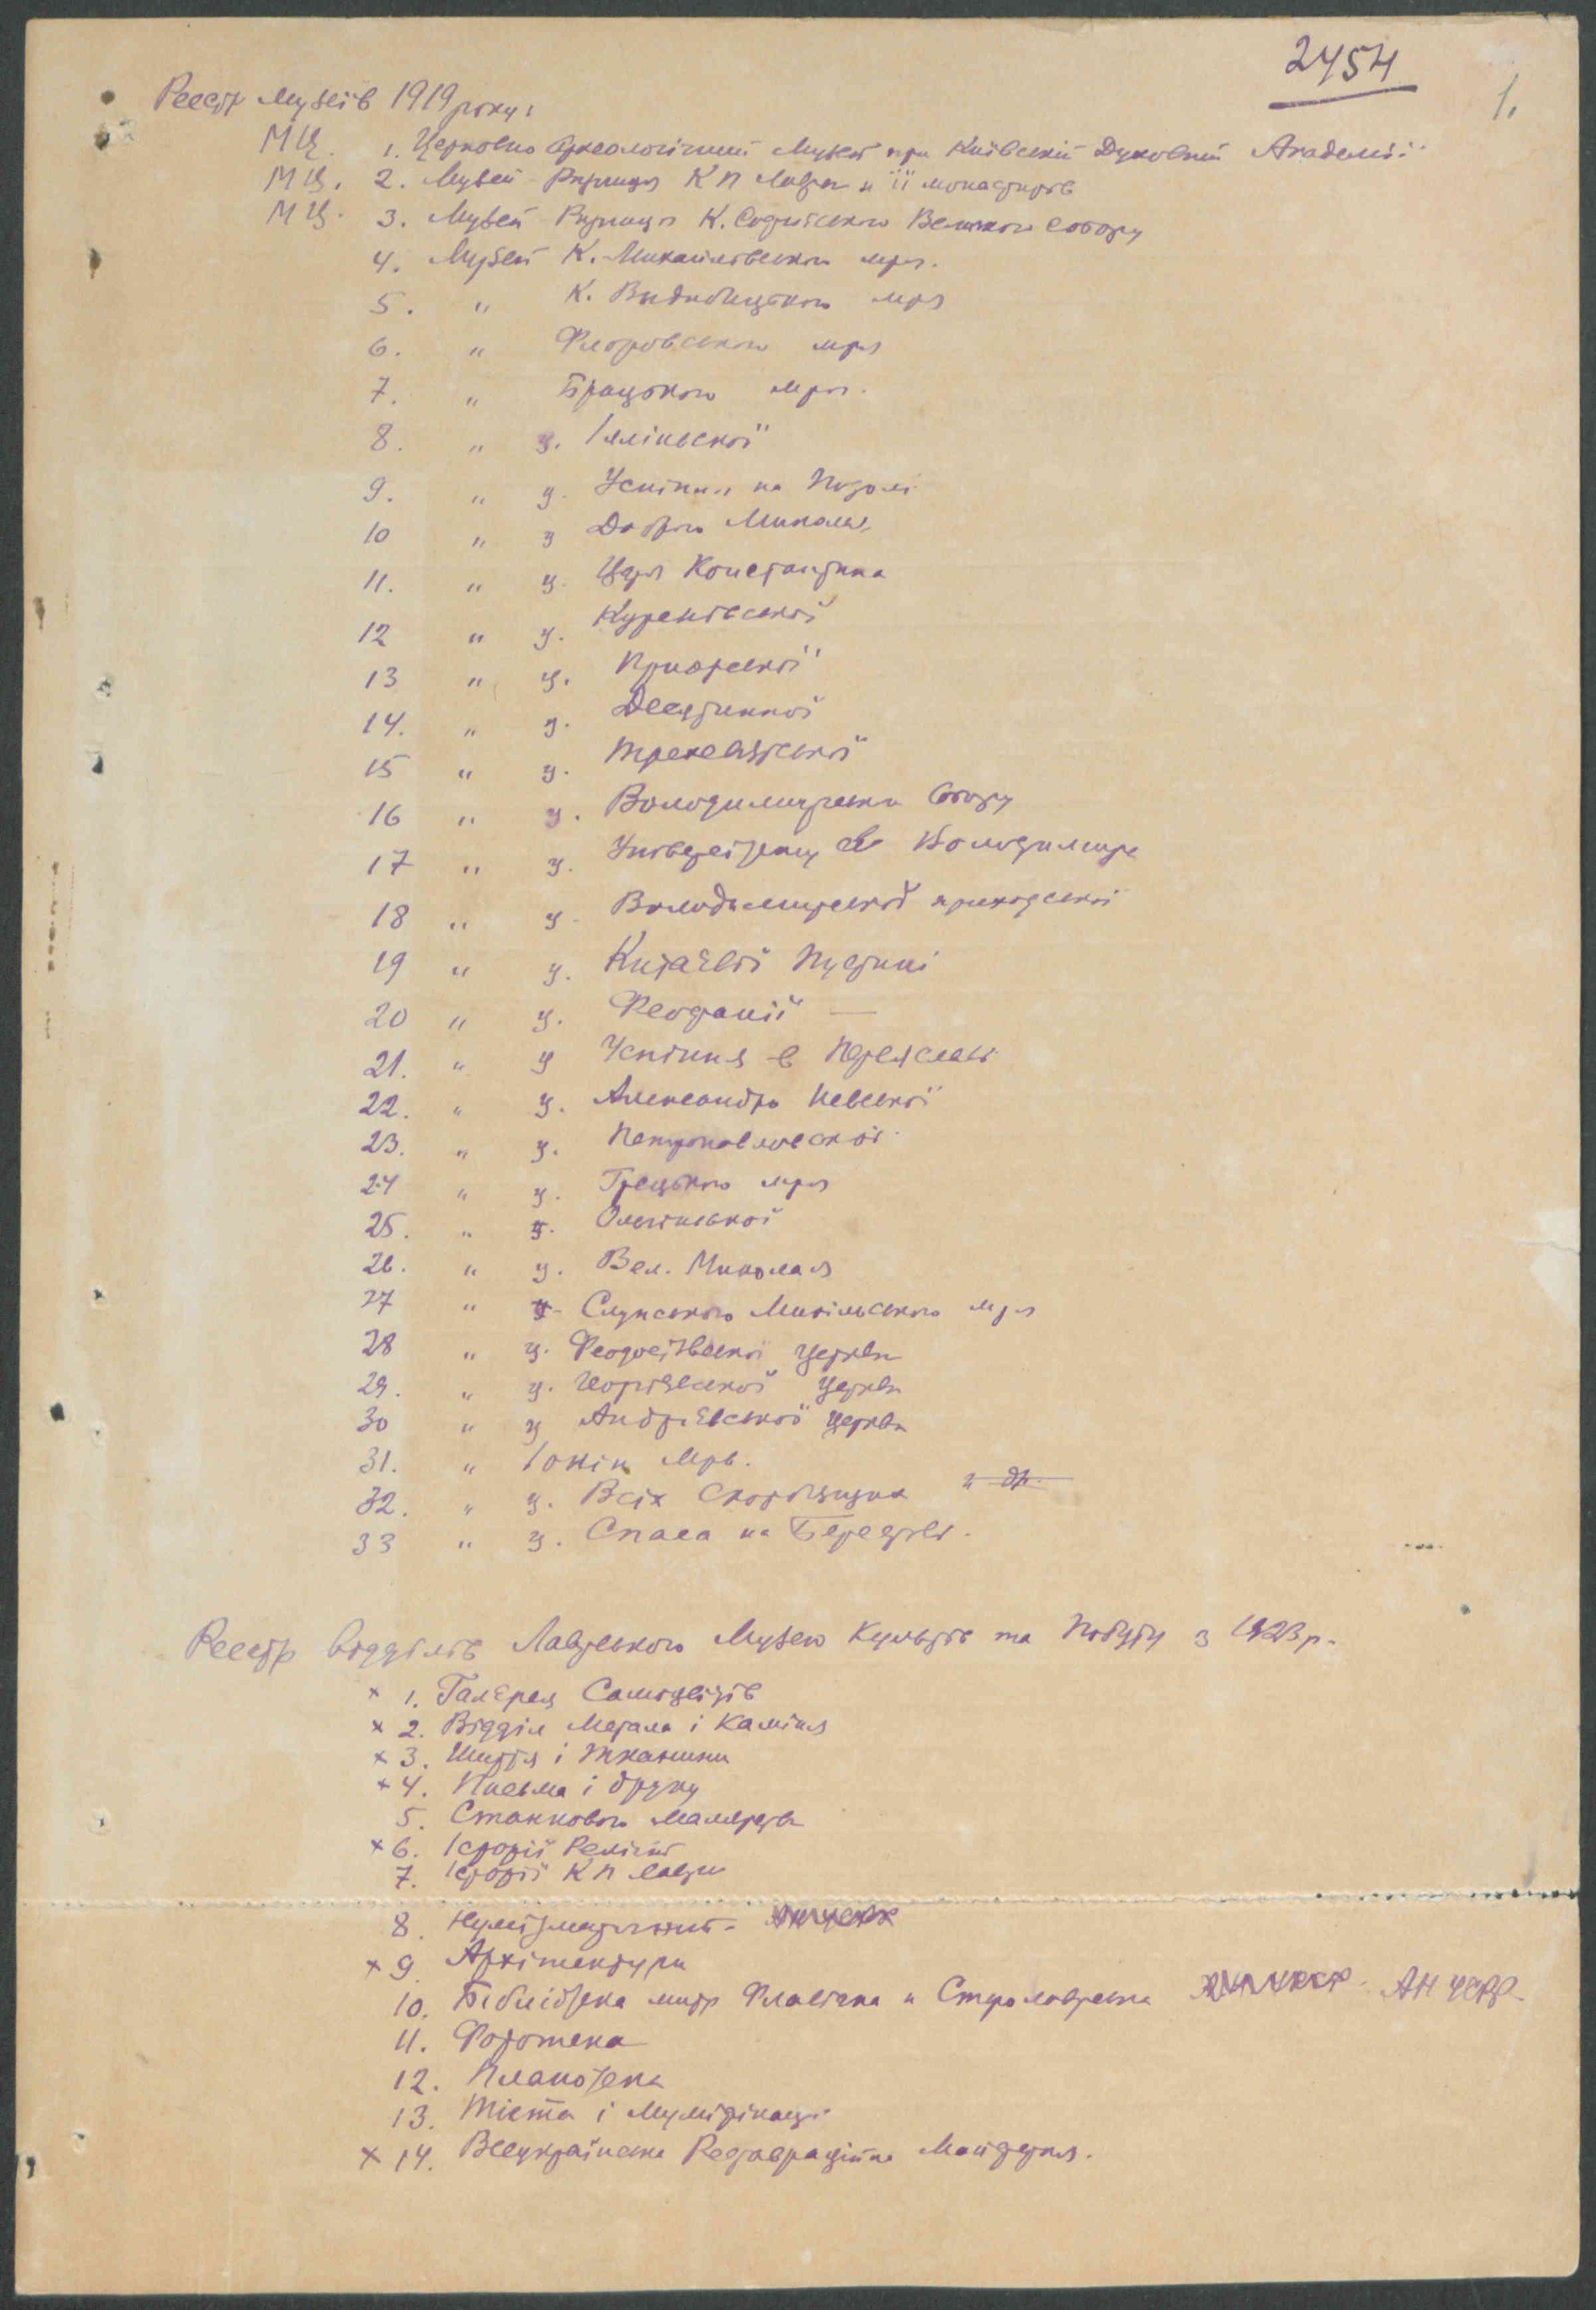 2454
1.
Реєстр Музеїв 1919 року:
МЦ. 1. Церковно Археологічний Музей при Київській Духовній Академії
МЦ. 2. Музей-Ризниця КП Лаври и її монастирів
МЦ. 3. Музей Ризниця К. Софійського Великого Собору
4. Музей К. Михайлівського мря.
5. " К. Видибицького мря
6. " Флоровського мря
7. " Брацького мря.
8. " ц. Іллінської
9. " ц. Успіння на Подолі
10 " ц Доброго Миколи
11. " ц. Царя Константина
12 " ц. Куренівської
13 " ц. Приорської
14. " ц. Десятинної
15 " ц. Трехсвятської
16 " ц. Володимирського Собору
17 " ц. Університету Св Володимира
18 " ц. Володимирської приходської
19 " ц. Китаєвої Пустині
20 " ц. Феофанії —
21. " ц Успіння в Переяславі
22. " ц. Александро Невської
23. " ц. Петропавловської
24 " ц. Грецького мря
25. " ц. Ольгинської
26. " ц. Вел. Миколая
27 " ц. Слупського Микільського мря
28 " ц. Феодосіївської церкви
29. " ц. Георгієвської церкви
30 " ц Андріївської церкви
31. " Іонін Мрь.
32. " ц. Всіх Скорбящих и др.
33 " ц. Спаса на Берестові.
Реєстр відділів Лаврського Музею Культів та Побуту з 1923 р.
× 1. Галєрея Самоцвітів
× 2. Відділ Метала і Каміня
× 3. Шиття і Тканини
× 4. Письма і друку
5. Станкового малярства
× 6. Історії Релігій
7. Історії КП Лаври
8. Нумізматичний -
× 9. Архітектури
10. Бібліотека митр Флавіана и Старолаврська АН УСРР.
11. Фототека
12. Планотека
13. Міста і Муміфікації
× 14. Всеукраїнська Реставраційна Майстерня.